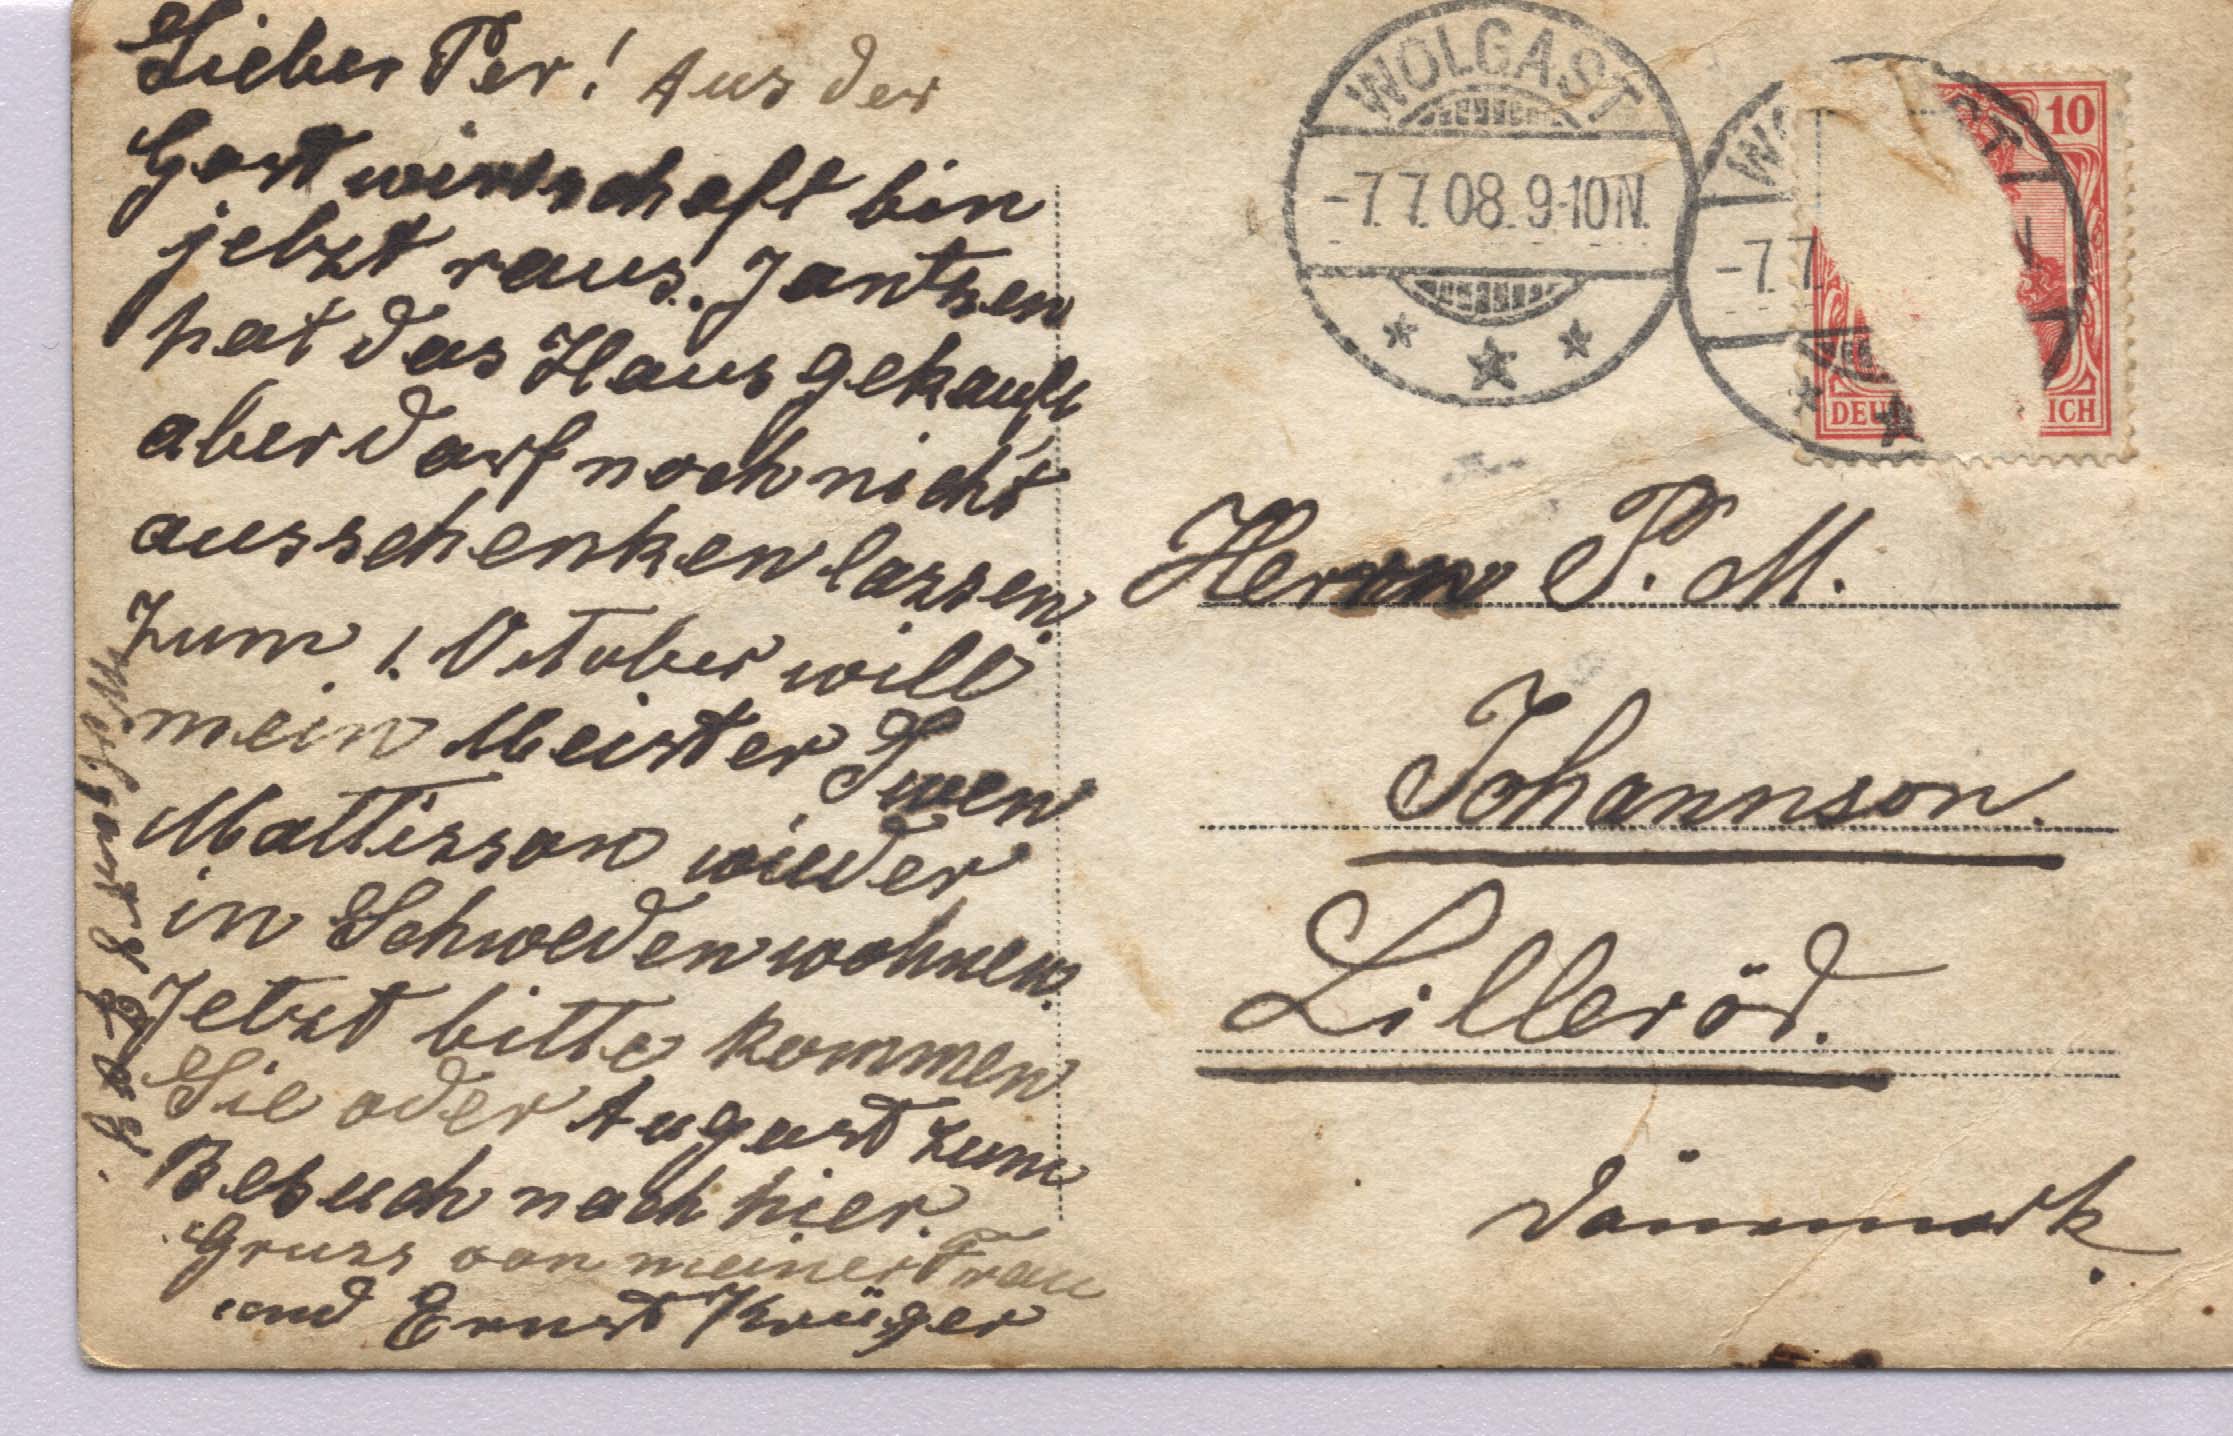 Lieber Per! Aus der
Gastwirtschaft bin
jetzt raus. Jantzen
hat das Haus gekauft
aber darf noch nicht
ausschenken lassen.
Zum 1. October will
mein Meister Swen
Mattisson wieder
in Schweden wohnen.
Jetzt bitte kommen
Sie oder August zum
Besuch nach hier.
Gruss von meiner Frau
und Ernst Krüger
WOLGAST
-7.7.08. 9-10N.
-7.7
10
DEU
ICH
Herrn P. M.
Johannson.
Lilleröd.
Dänemark.